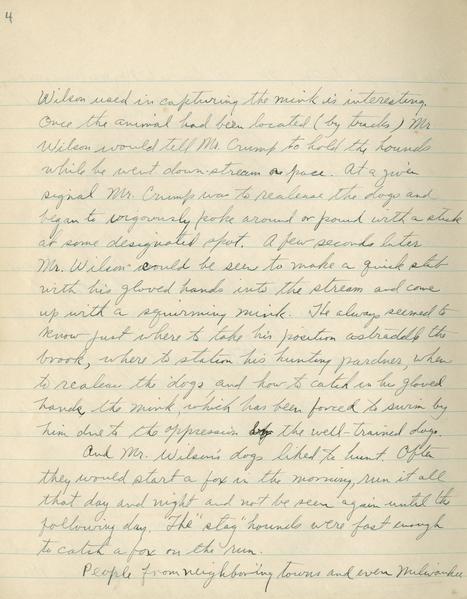 4
Wilson used in capturing the mink is interesting.
Once the animal had been located (by tracks) Mr
Wilson would tell Mr. Crump to hold the hounds
while he went down-stream a pace. At a given
signal Mr. Crump was to realease the dogs and
began to vigorously poke around or pound with a stick
at some designated spot. A few seconds later
Mr. Wilson could be seen to make a quick stab
with his gloved hands into the stream and come
up with a squirming mink. He always seemed to
know just where to take his position astraddle the
brook, where to station his hunting pardner, when
to realease the dogs and how to catch in his gloved
hands, the mink, which has been forced to swim by
him due to the oppression by the well-trained dogs.
And Mr. Wilson's dogs liked to hunt. Often
they would start a fox in the morning, run it all
that day and night and not be seen again until the
following day. The "stag" hounds were fast enough
to catch a fox on the run.
People from neighboring towns and even Milwaukee